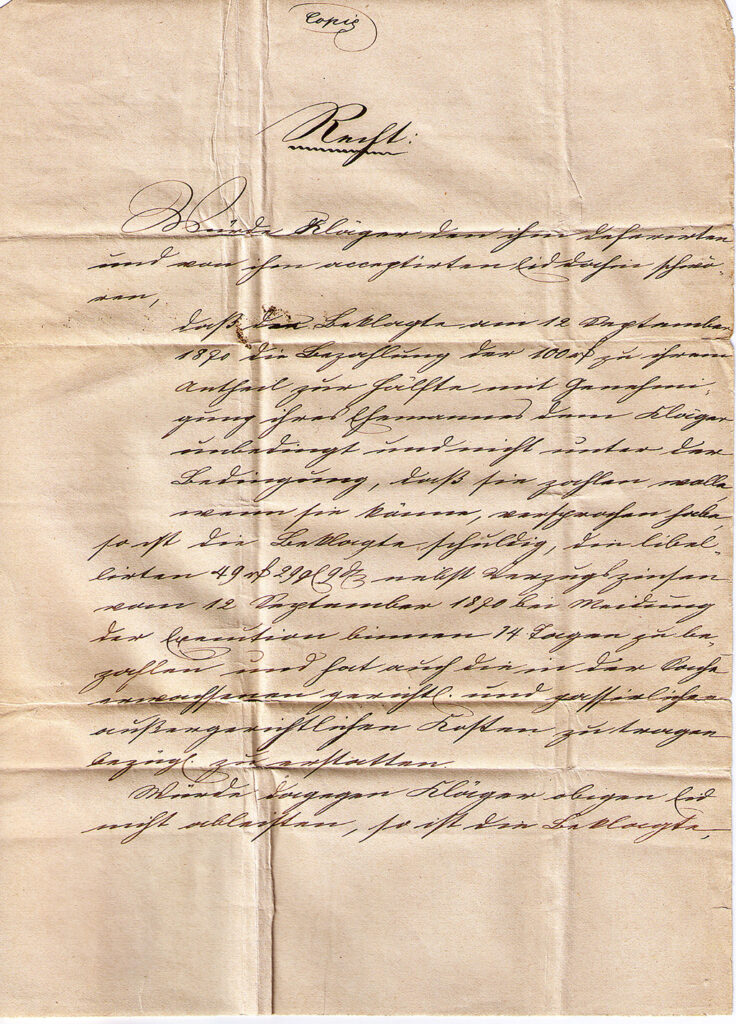 Copie
Recht:
Würde Kläger den ihm deferirten
und von ihm acceptirten Eid dahin schwö-
ren,
daß die Beklagte am 12 September
1870 die Bezahlung der 100 rℓ zu ihrem
Antheil zur Hälfte mit Genehmi-
gung ihres Ehemannes dem Kläger
unbedingt und nicht unter der
Bedingung, daß sie zahlen wolle,
wenn sie könne, versprochen habe,
so ist die Beklagte schuldig, die libel-
lirten 49 rℓ 29 9 nebst Verzugszinsen
vom 12 September 1870 bei Meidung
der Execution binnen 14 Tagen zu be-
zahlen und hat auch die in der Sache
erwachsenen gerichtl. und passirlichen
außergerichtlichen Kosten zu tragen
bezügl. zu erstatten.
Würde dagegen Kläger obigen Eid
nicht ableisten, so ist die Beklagte,